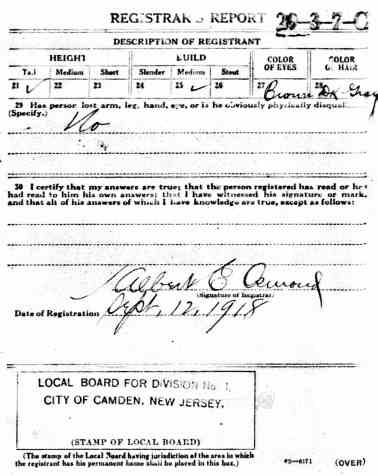 REGISTRAR'S REPORT 29-3-7-C
DESCRIPTION OF REGISTRANT
HEIGHT BUILD COLOR OF EYES COLOR OF HAIR
Tall Medium Short Slender Medium Stout
21 ✓ 22 23 24 25 ✓ 26 27 Brown 28 Dk Gray
29 Has person lost arm, leg, hand, eye, or is he obviously physically disqual
(Specify.) No
30 I certify that my answers are true; that the person registered has read or has
had read to him his own answers; that I have witnessed his signature or mark,
and that all of his answers of which I have knowledge are true, except as follows:
Albert E
(Signature of Registrar)
Date of Registration Sept. 12, 1918
LOCAL BOARD FOR DIVISION No. 1,
CITY OF CAMDEN, NEW JERSEY.
(STAMP OF LOCAL BOARD)
(The stamp of the Local Board having jurisdiction of the area in which
the registrant has his permanent home shall be placed in this box.)
(OVER)